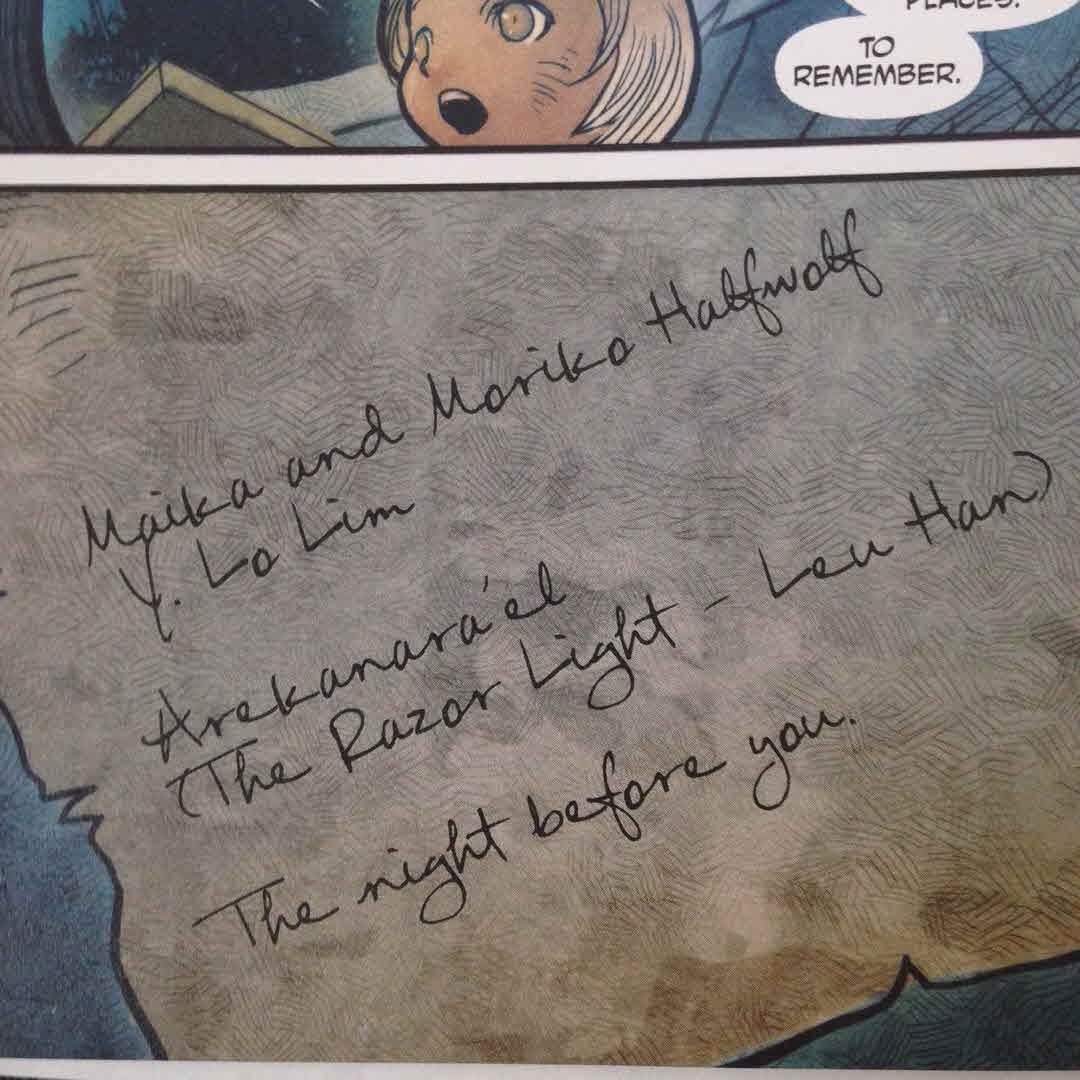 PLACES.
TO
REMEMBER.
Maika and Moriko Halfwolf
Y. Lo Lim
Arekanara'el
(The Razor Light - Leu Han)
The night before you.